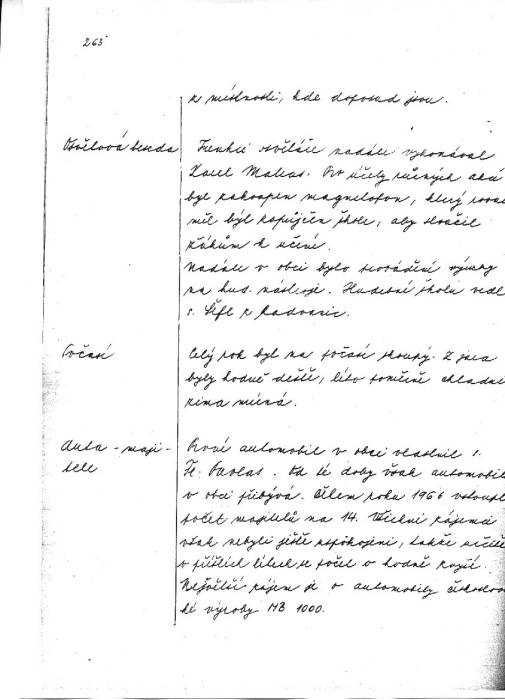 263
z místnosti, kde doposud jsou.
Osvětová beseda
Funkci osvětáře nadále vykonával
Karel Matas. Pro účely různých akcí
byl zakoupen magnetofon, který
měl být zapůjčen škole, aby sloužil
žákům k učení.
Nadále v obci bylo provádění výuky
na hud. nástroje. Hudební škola vedl
s. Šifl z Radonic.
Počasí
Celý rok byl na počasí skoupý. Z jara
byly hodně deště, léto poměrně chladné
zima mírná.
Auta - maji-
telé
První automobil v obci vlastnil s.
Fr. Pavlas. Od té doby však automobilů
v obci přibývá. Během roku 1966 vstoupl
počet majitelů na 14. Všichni zájemci
však nebyli ještě uspokojeni, takže určitě
v příštích letech se počet o hodně zvýší.
Největší zájem je o automobily
ké výroby MB 1000.